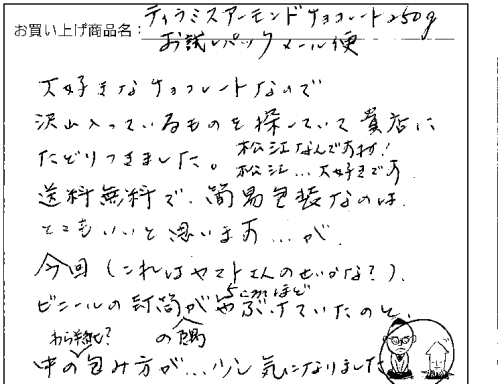 お買い上げ商品名: ティラミスアーモンドチョコレート250g
お試しパックメール便
大好きなチョコレートなので
沢山入っているものを探していて貴店に
たどりつきました。松江なんですね!
松江...大好きです
送料無料で、簡易包装なのは、
とてもいいと思います...が、
今回(これはヤマトさんのせいかな?)、
ビニールの封筒がやぶけていたのと、
わら半紙?
中の包み方が...少し気になりました